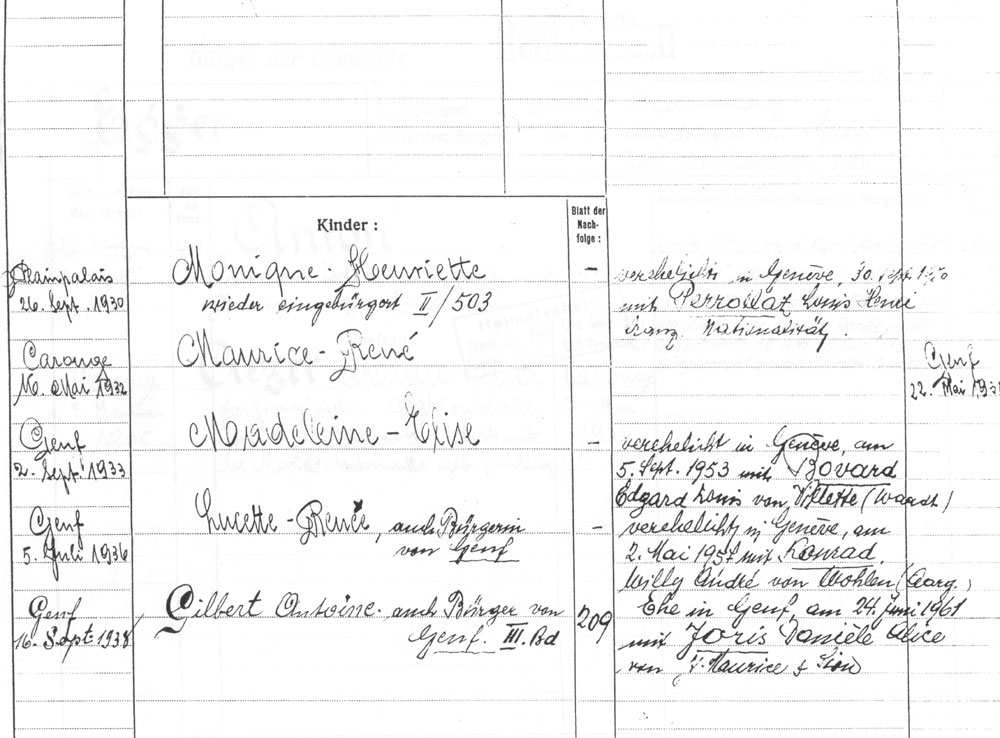 Bürger der Gemeinde
Kinder :
Blatt der
Nach-
folge :
Plainpalais
26. Sept. 1930
Monique-Henriette
wieder eingebürgert II/503
–
verehelicht in Genève, 30. Sept. 1950
mit Louis Henri
franz. Nationalität.
Carouge
16. Mai 1932
Maurice-René
Genf
22. Mai 193
Genf
2. Sept. 1933
Madeleine-Elise
–
verehelicht in Genève, am
5. Sept. 1953 mit Bovard
Edgard Louis von Villette (Waadt)
Genf
5. Juli 1936
Lucette-Renée, auch Bürgerin
von Genf
–
verehelicht in Genève, am
2. Mai 1957 mit Konrad
Willy André von Wohlen (Aarg.)
Genf
16. Sept. 1938
Gilbert Antoine. auch Bürger von
Genf. III. Bd
209
Ehe in Genf, am 24. Juni 1961
mit Joris Danièle Alice
von St. Maurice & Sion